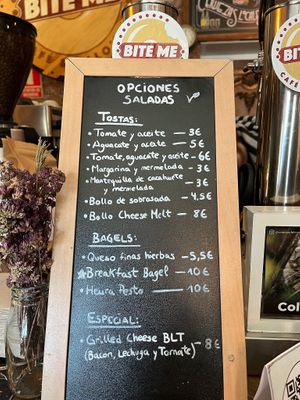 BITE ME
BITE ME
BITE ME
CAFE
OPCIONES
SALADAS
TOSTAS:
• Tomate y aceite — 3€
• Aguacate y aceite — 5€
• Tomate, aguacate y aceite - 6€
• Margarina y mermelada - 3€
• Mantequilla de cacahuete y mermelada - 3€
• Bollo de sobrasada - 4,5€
• Bollo Cheese Melt - 8€
BAGELS:
• Queso finas hierbas - 5,5€
★ Breakfast Bagel - 10€
• Heura Pesto — 10€
ESPECIAL:
• Grilled Cheese BLT - 8€
(Bacon, Lechuga y Tomate)
Col